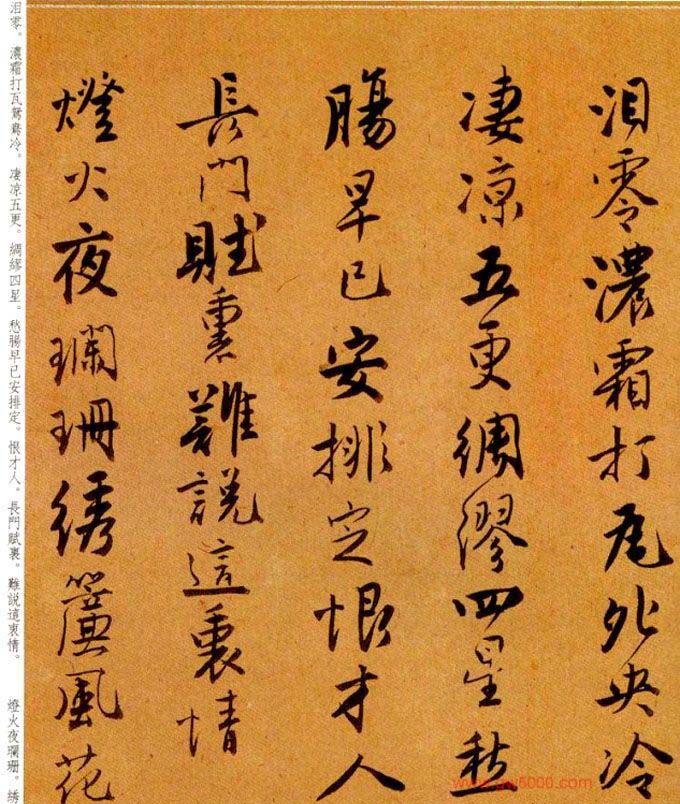 泪零濃霜打瓦夗央冷
凄凉五更綢繆四星愁
腸早已安排定恨才人
長門賦裏難説這衷情
燈火夜瓓珊绣簾風花
泪零。濃霜打瓦鴛鴦冷。凄凉五更。綢繆四星。愁腸早已安排定。恨才人。長門賦裏。難説這衷情。 燈火夜瓓珊。绣